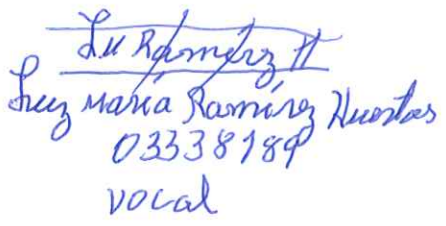 Lu Ramírez H
Luz María Ramírez Huertas
03338189
vocal